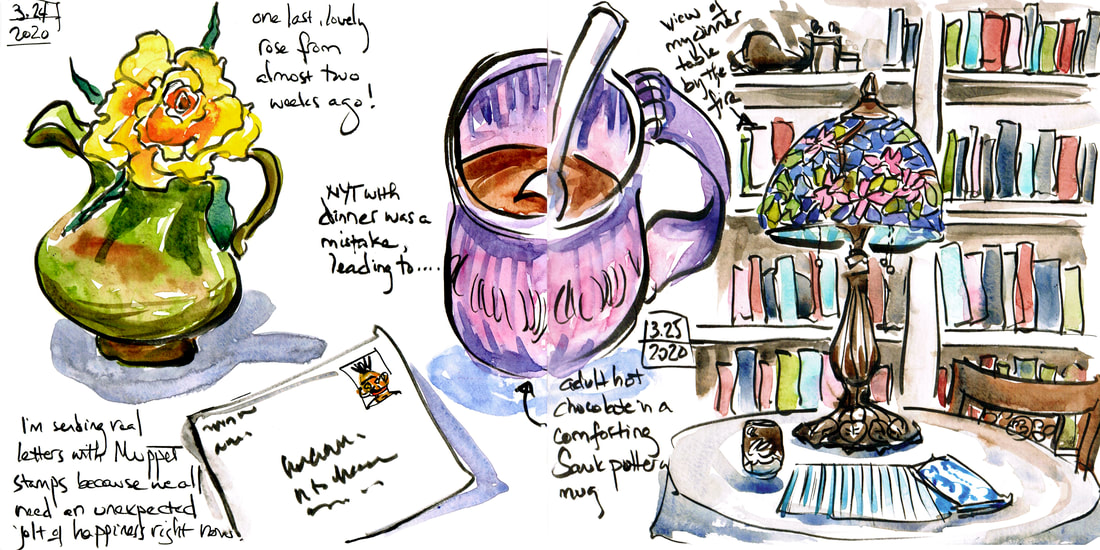 3.24
2020
one last, lovely
rose from
almost two
weeks ago!
NYT with
dinner was a
mistake,
leading to....
I'm sending real
letters with Muppet
stamps because we all
need an unexpected
jolt of happiness right now.
view of
my dinner
table
by the
fire
3.25
2020
adult hot
chocolate in a
comforting
Sawk pottery
mug